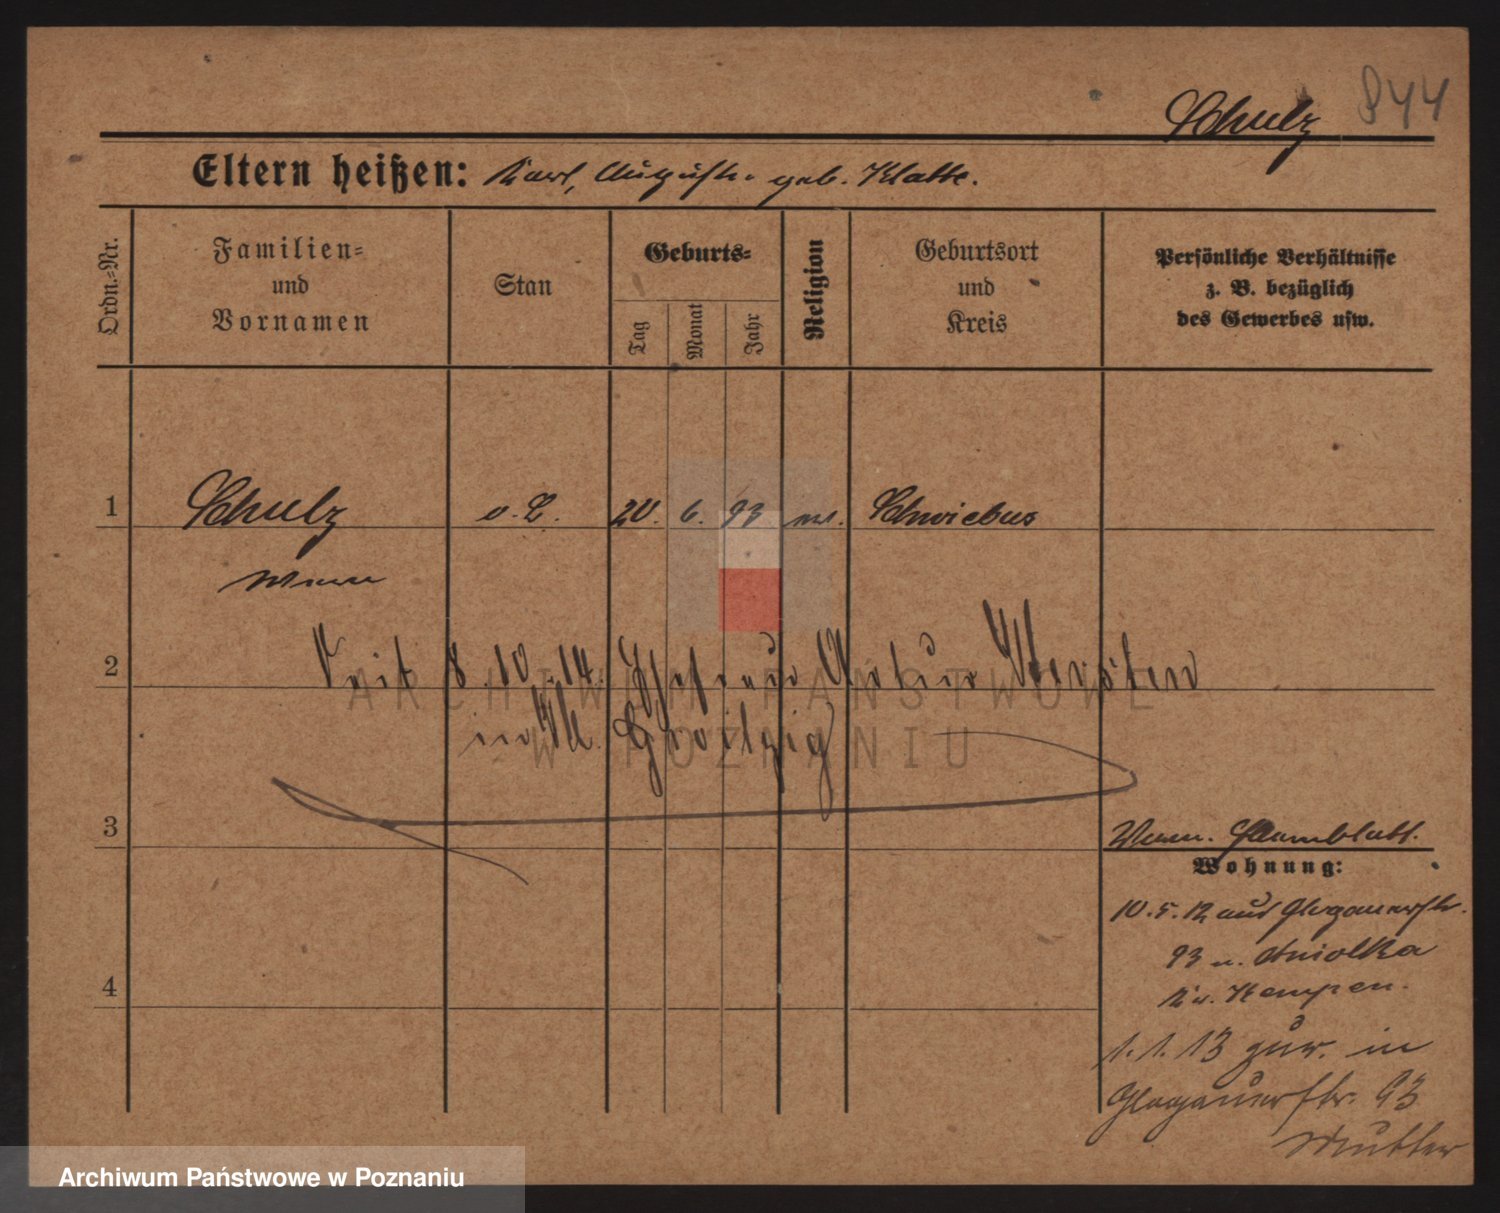 844
Schulz
Eltern heißen: Karl, Auguste geb. Klatte.
Ordn.-Nr.
Familien-
und
Vornamen
Stan
Geburts-
Tag
Monat
Jahr
Religion
Geburtsort
und
Kreis
Persönliche Verhältnisse
z. B. bezüglich
des Gewerbes usw.
1 Schulz o. B. 20. 6. 93 ev. Schwiebus
2 Seit 8.10.14. Ehefrau Artur
in Kl.
3
Stammblatt.
Wohnung:
10.5.12 aus Glogauerstr.
93 n. Aniolka
Kr. Kempen.
4
1.1.13 zur. in
Glogauerstr. 93
Mutter
ARCHIWUM PAŃSTWOWE
W POZNANIU
Archiwum Państwowe w Poznaniu